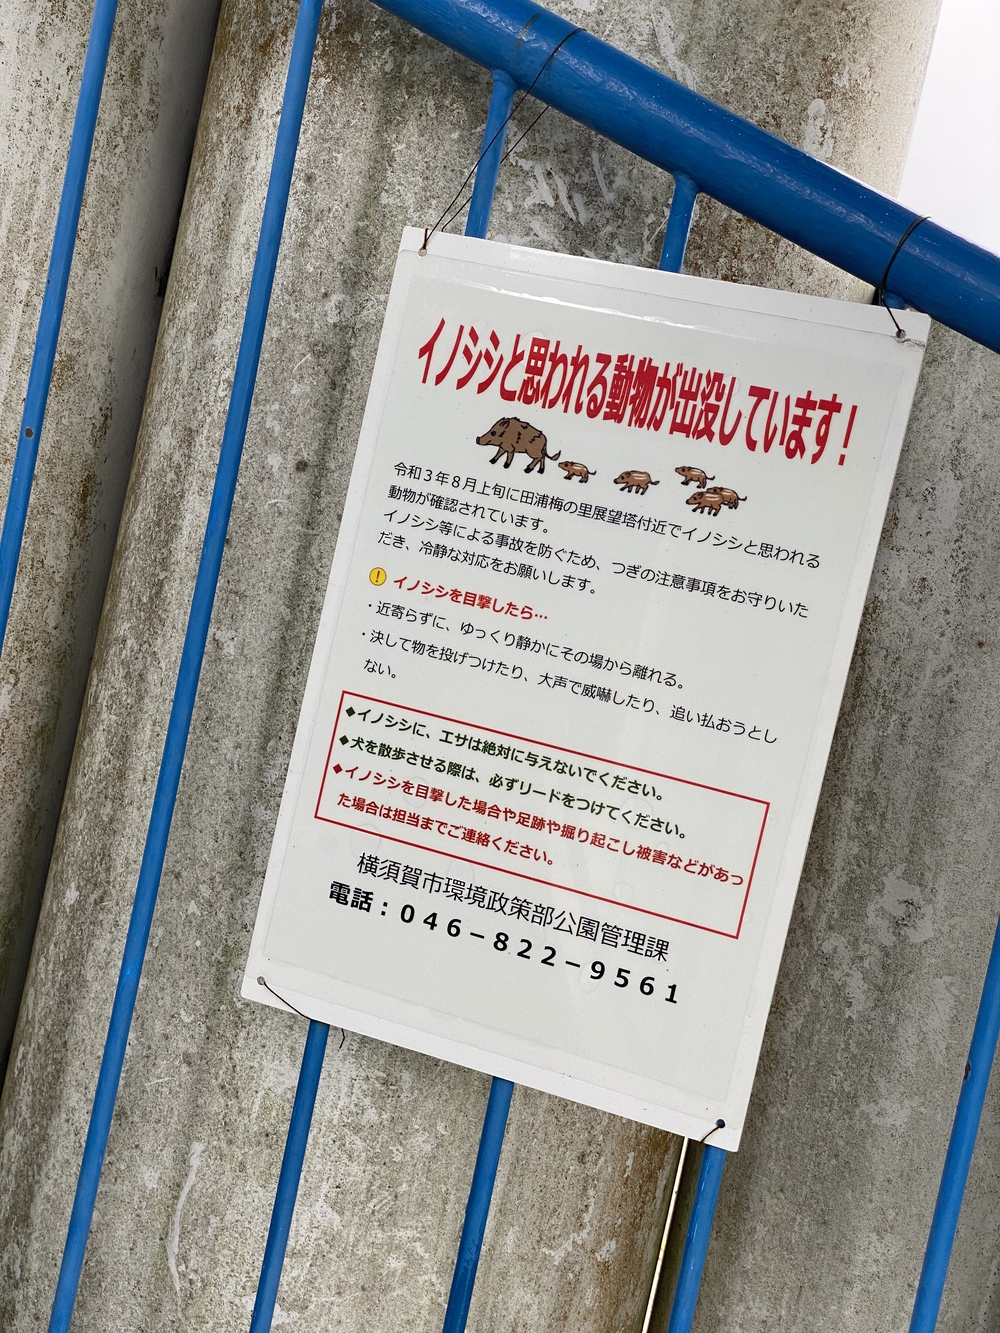 イノシシと思われる動物が出没しています！
令和３年８月上旬に田浦梅の里展望塔付近でイノシシと思われる
動物が確認されています。
イノシシ等による事故を防ぐため、つぎの注意事項をお守りいた
だき、冷静な対応をお願いします。
! イノシシを目撃したら…
・近寄らずに、ゆっくり静かにその場から離れる。
・決して物を投げつけたり、大声で威嚇したり、追い払おうとし
ない。
◆イノシシに、エサは絶対に与えないでください。
◆犬を散歩させる際は、必ずリードをつけてください。
◆イノシシを目撃した場合や足跡や掘り起こし被害などがあっ
た場合は担当までご連絡ください。
横須賀市環境政策部公園管理課
電話：０４６－８２２－９５６１